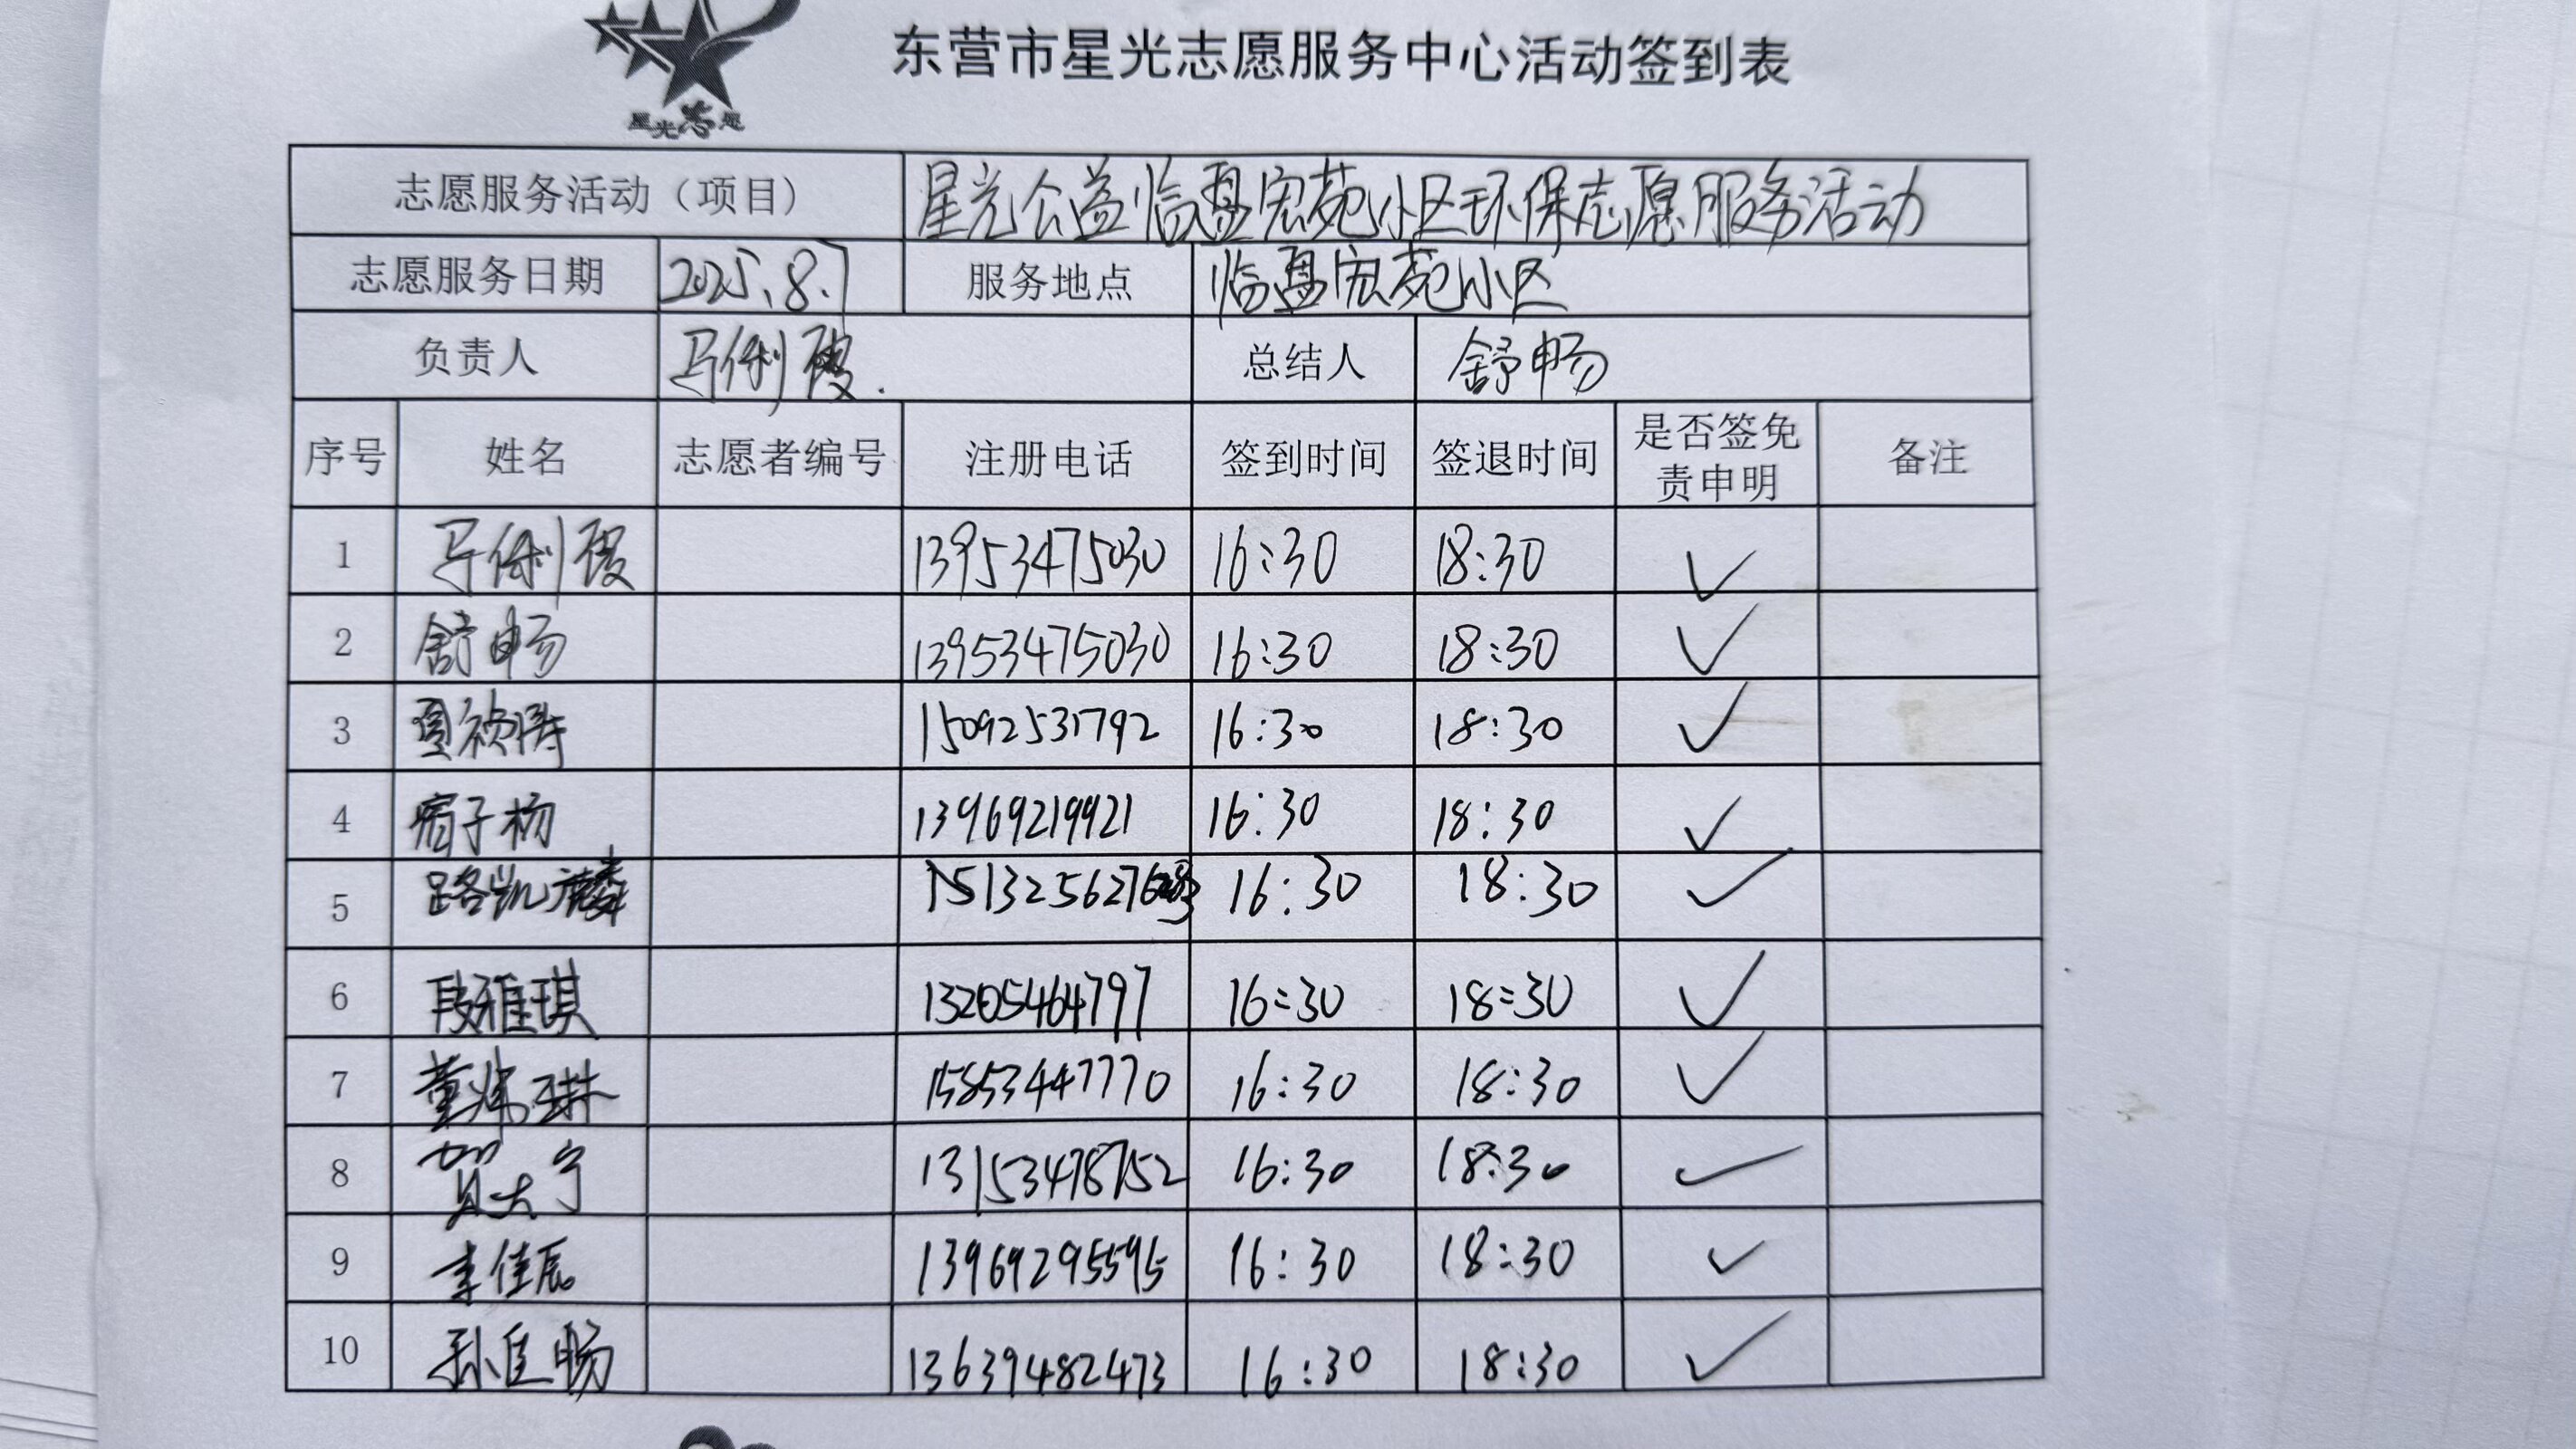 星光志愿
东营市星光志愿服务中心活动签到表
志愿服务活动（项目） 星光公益临盘宏苑小区环保志愿服务活动
志愿服务日期 2025.8.7 服务地点 临盘宏苑小区
负责人 马俐霞. 总结人 舒畅
序号 姓名 志愿者编号 注册电话 签到时间 签退时间 是否签免责申明 备注
1 马俐霞 13953475030 16:30 18:30 ✓
2 舒畅 13953475030 16:30 18:30 ✓
3 15092531792 16:30 18:30 ✓
4 宿子杨 13969219921 16:30 18:30 ✓
5 路凯麟 16:30 18:30 ✓
6 段雅琪 13205464797 16:30 18:30 ✓
7 董炜琳 15853447770 16:30 18:30 ✓
8 贺大宁 13153478752 16:30 18:30 ✓
9 李佳辰 13969295595 16:30 18:30 ✓
10 孙匡畅 13639482473 16:30 18:30 ✓